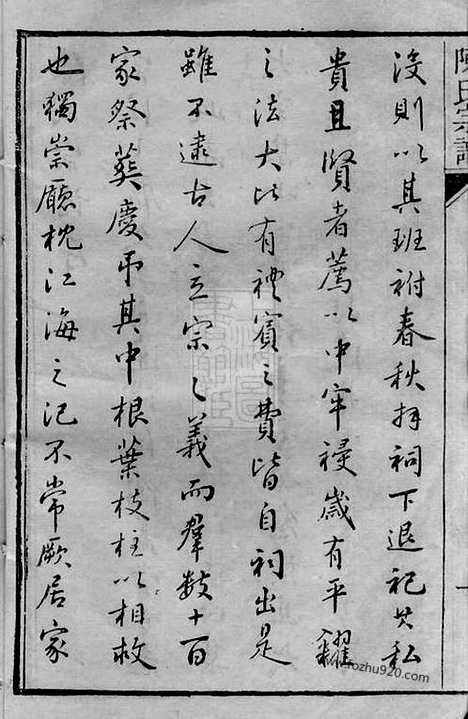 陳氏宗譜
没則以其班祔春秋拜祠下退祀其私
貴且賢者薦以中牢祲歲有平糶
之法大比有禮賓之費皆自祠出是
雖不逮古人立宗之義而羣數十百
家祭葬慶弔其中根葉枝柱以相救
也獨崇廳枕江海之汜不常厥居家
www.rozhu920.com